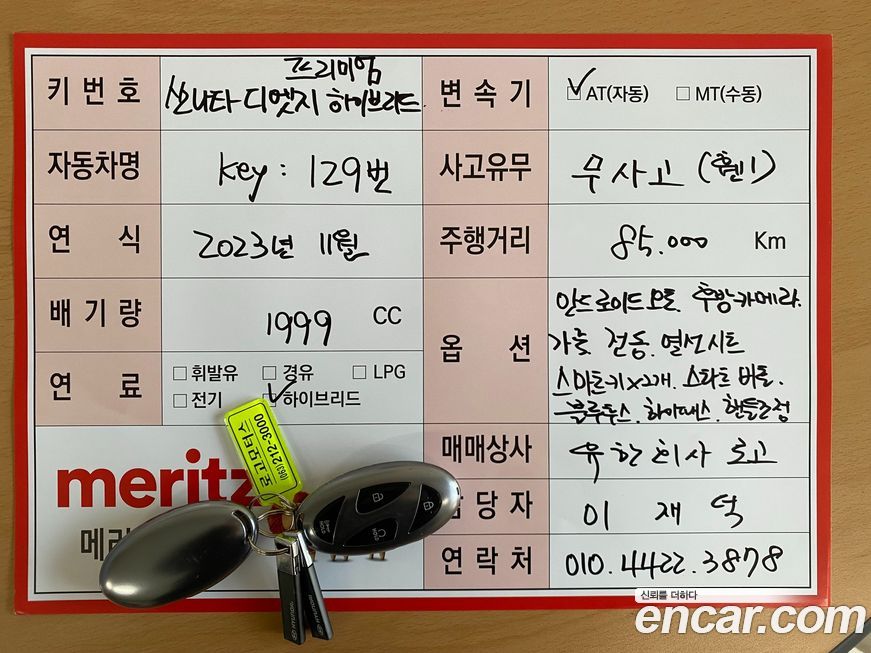 키 번 호
프리미엄
쏘나타 디엣지 하이브리드.
변 속 기
AT(자동) MT(수동)
자동차명
key : 129번
사고유무
무사고 (휀1)
연 식
2023년 11월
주행거리
85.000 Km
배 기 량
1999 CC
옵 션
안드로이드오토. 후방카메라.
가죽 전동. 열선시트
스마트키x2개. 스타트 버튼.
블루투스. 하이패스. 핸들조정
연 료
휘발유 경유 LPG
전기 하이브리드
매매상사
유한회사 로고
당 자
이 재 덕
연 락 처
010.4422.3878
meritz
메리
로고모터스
(063)212-3000
HOLD
HYUNDAI
HYUNDAI
신뢰를 더하다
encar.com